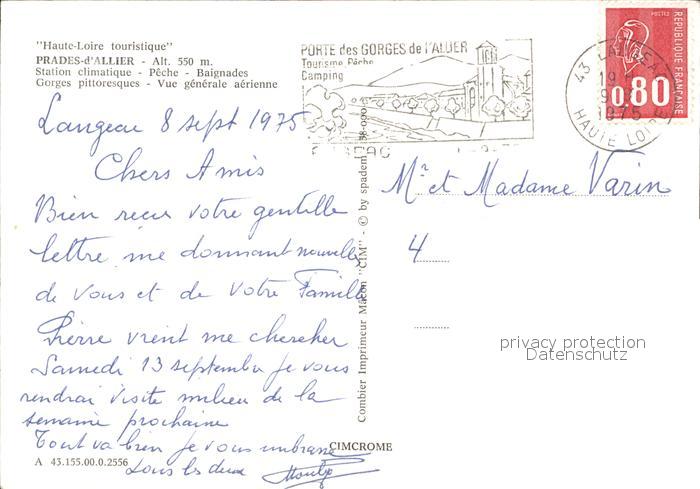 "Haute-Loire touristique"
PRADES-d'ALLIER - Alt. 550 m.
Station climatique - Pêche - Baignades
Gorges pittoresques - Vue générale aérienne
Langeac 8 sept 1975
Chers Amis
Bien reçu votre gentille
lettre me donnant nouvelles
de vous et de votre Famille
Pierre vient me chercher
Samedi 13 septembre je vous
rendrai visite milieu de la
semaine prochaine
Tout va bien je vous embrasse
tous les deux
A 43.155.00.0.2556
CIMCROME
Combier Imprimeur Mâcon "CIM" - © by spadem
PORTE des GORGES de l'ALLIER
Tourisme Pêche
Camping
43 LANGEAC
19
9
1975
HAUTE LOIRE
POSTES
REPUBLIQUE FRANÇAISE
0,80
Mr et Madame Varin
4
privacy protection
Datenschutz